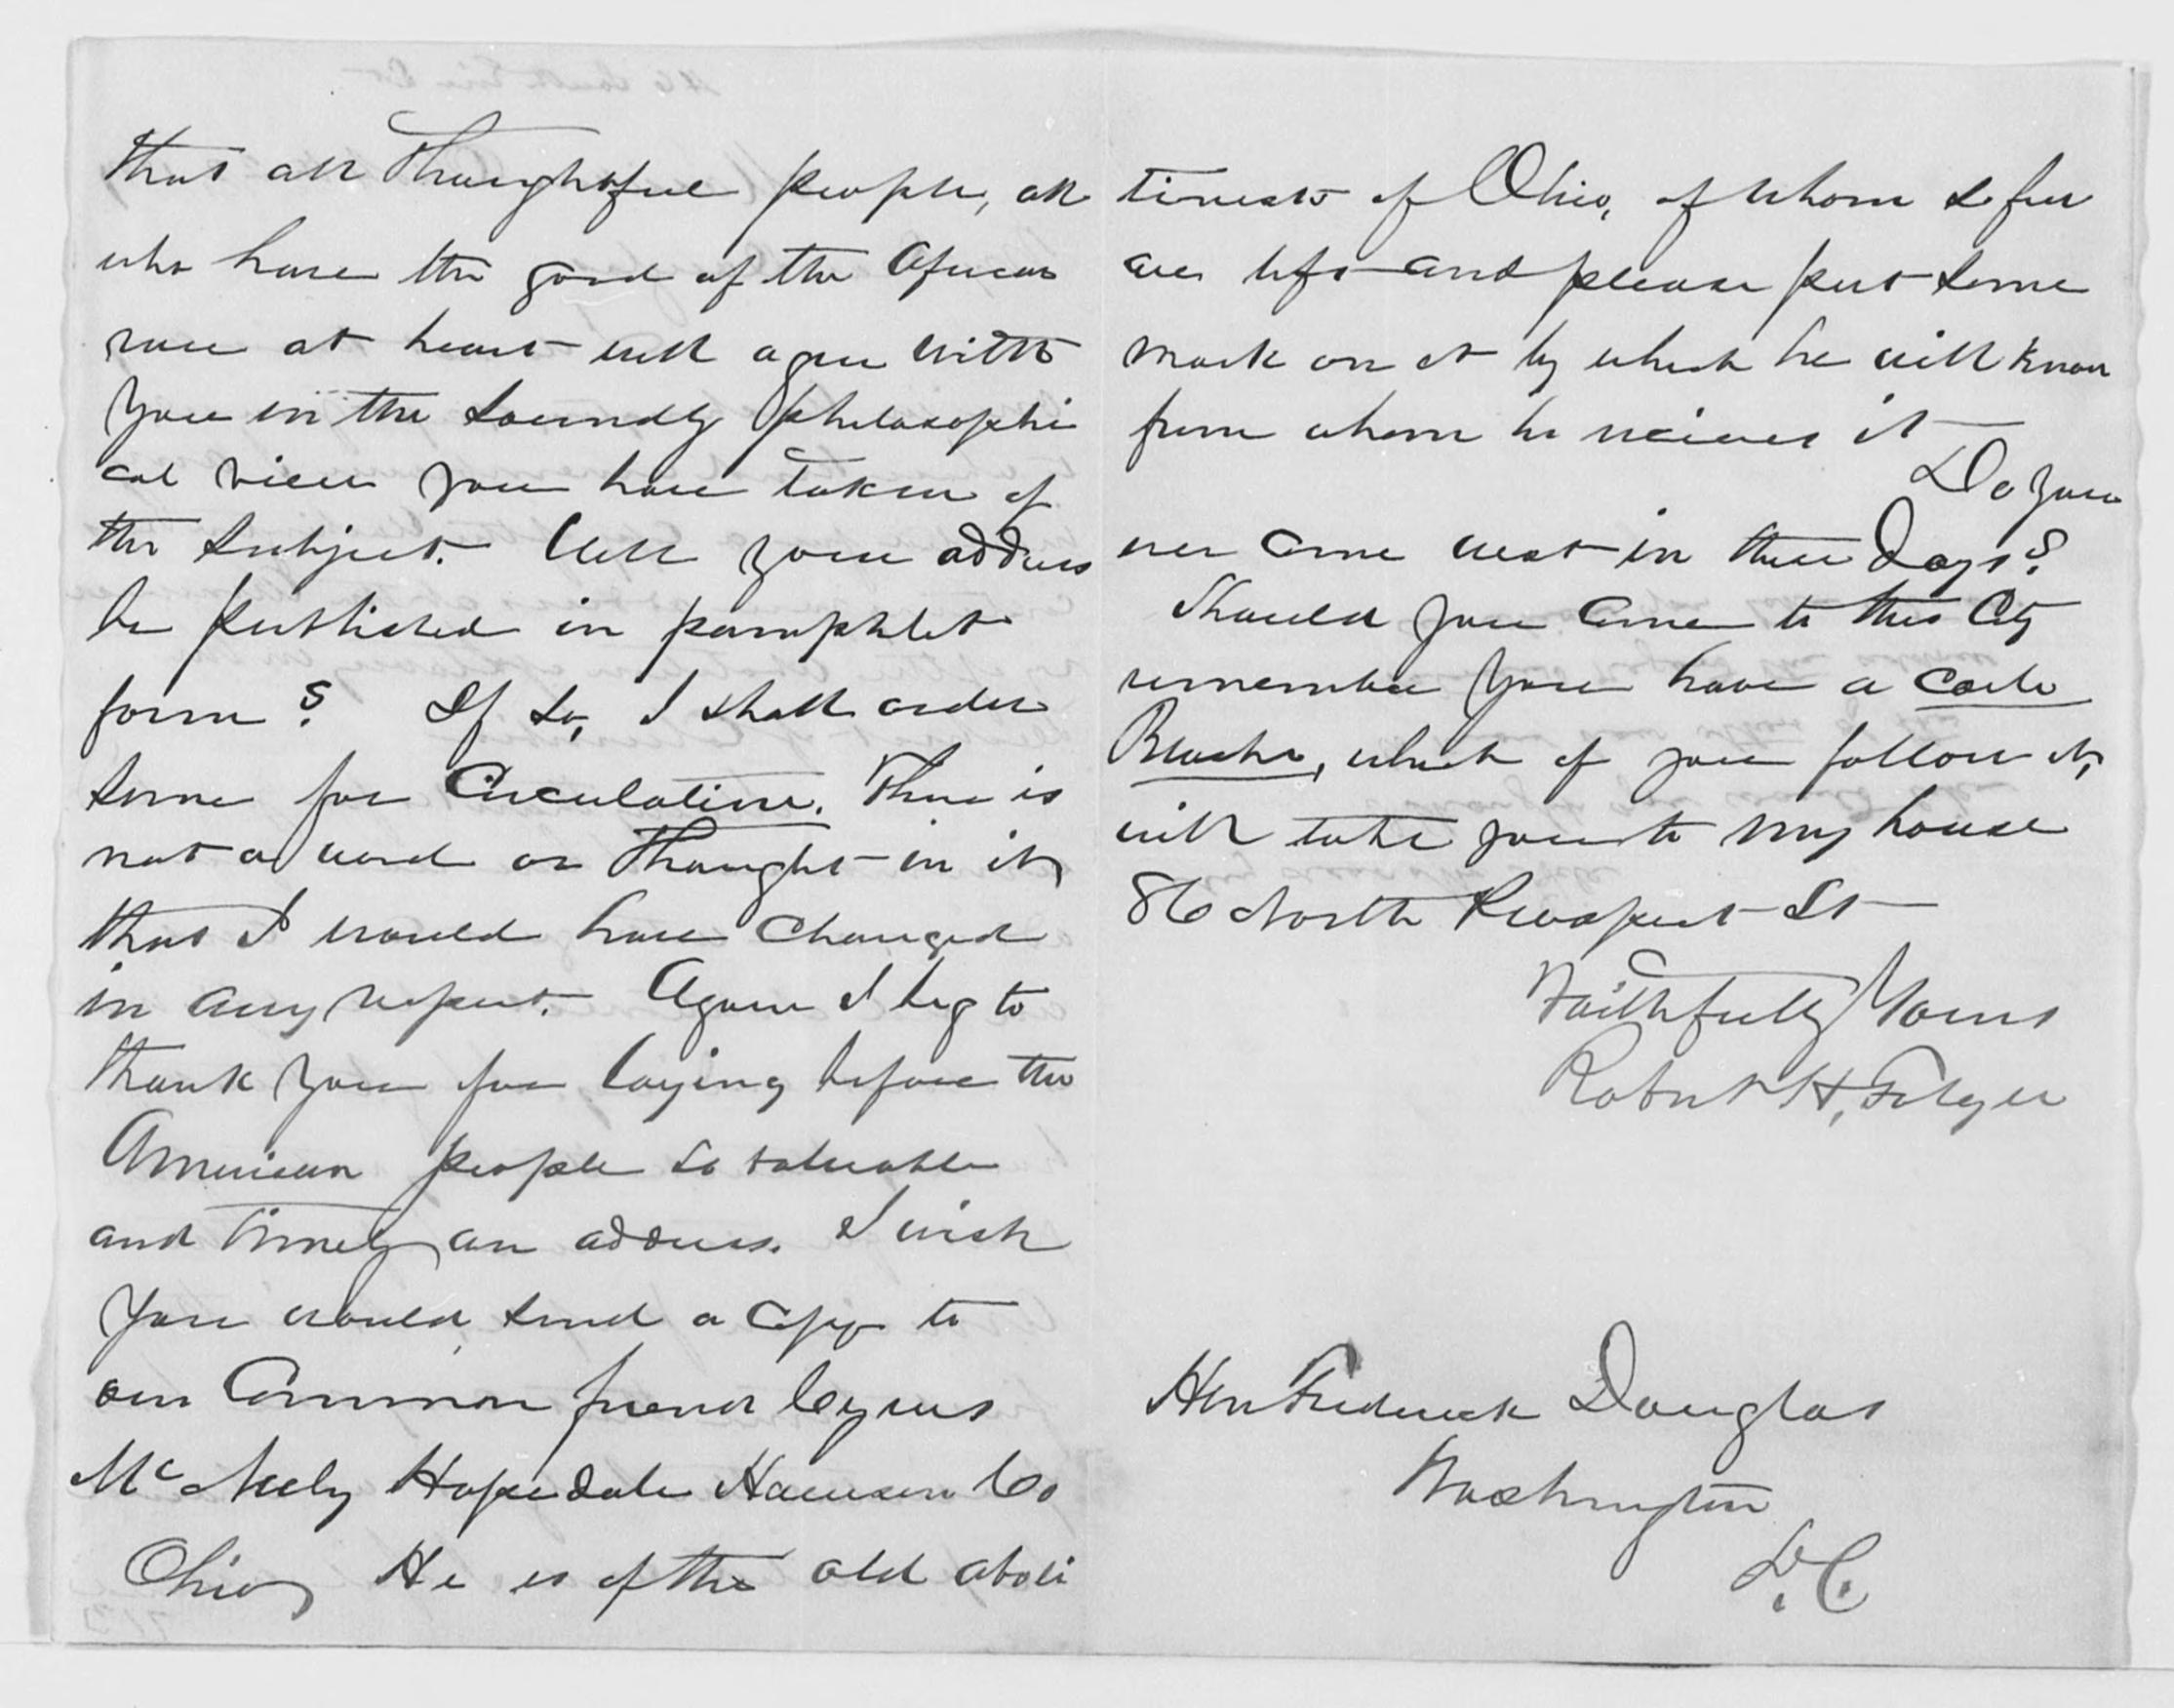 that all Thoughtful people, all
who have the good of the African
race at heart will agree with
you in the soundly philosophi
cal view you have taken of
the subject. Will your address
be published in pamphlet
form? If so, I shall order
some for Circulation. There is
not a word or Thought in it,
that I would have changed
in any respect. Again I beg to
thank you for laying before the
American people so valuable
and timely an address. I wish
you would send a copy to
our Common friend Cyrus
McNeely Hopedale Harrison Co
Ohio He is of the old aboli
tionists of Ohio, of whom so few
are left and please put some
mark on it by which he will know
from whom he recieves it
Do you
ever come west in these days?
Should you Come to this City
remember you have a Carte
Blanche, which if you follow it,
will take you to my house
86 North Prospect St
Faithfully Yours
Robert H, Folger
Hon Frederick Douglas
Washington
D.C.